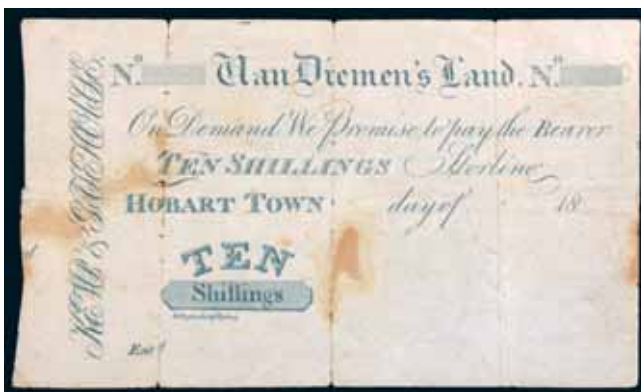 KEMP &
Nº Van Diemen's Land. Nº
On Demand We Promise to pay the Bearer
TEN SHILLINGS Sterling
HOBART TOWN day of 18
TEN
Shillings
Entd